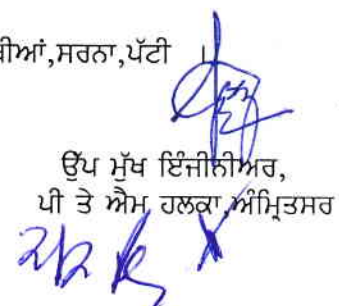 ਸਰਨਾ,ਪੱਟੀ ।
ਉੱਪ ਮੁੱਖ ਇੰਜੀਨੀਅਰ,
ਪੀ ਤੇ ਐਮ ਹਲਕਾ,ਅੰਮ੍ਰਿਤਸਰ